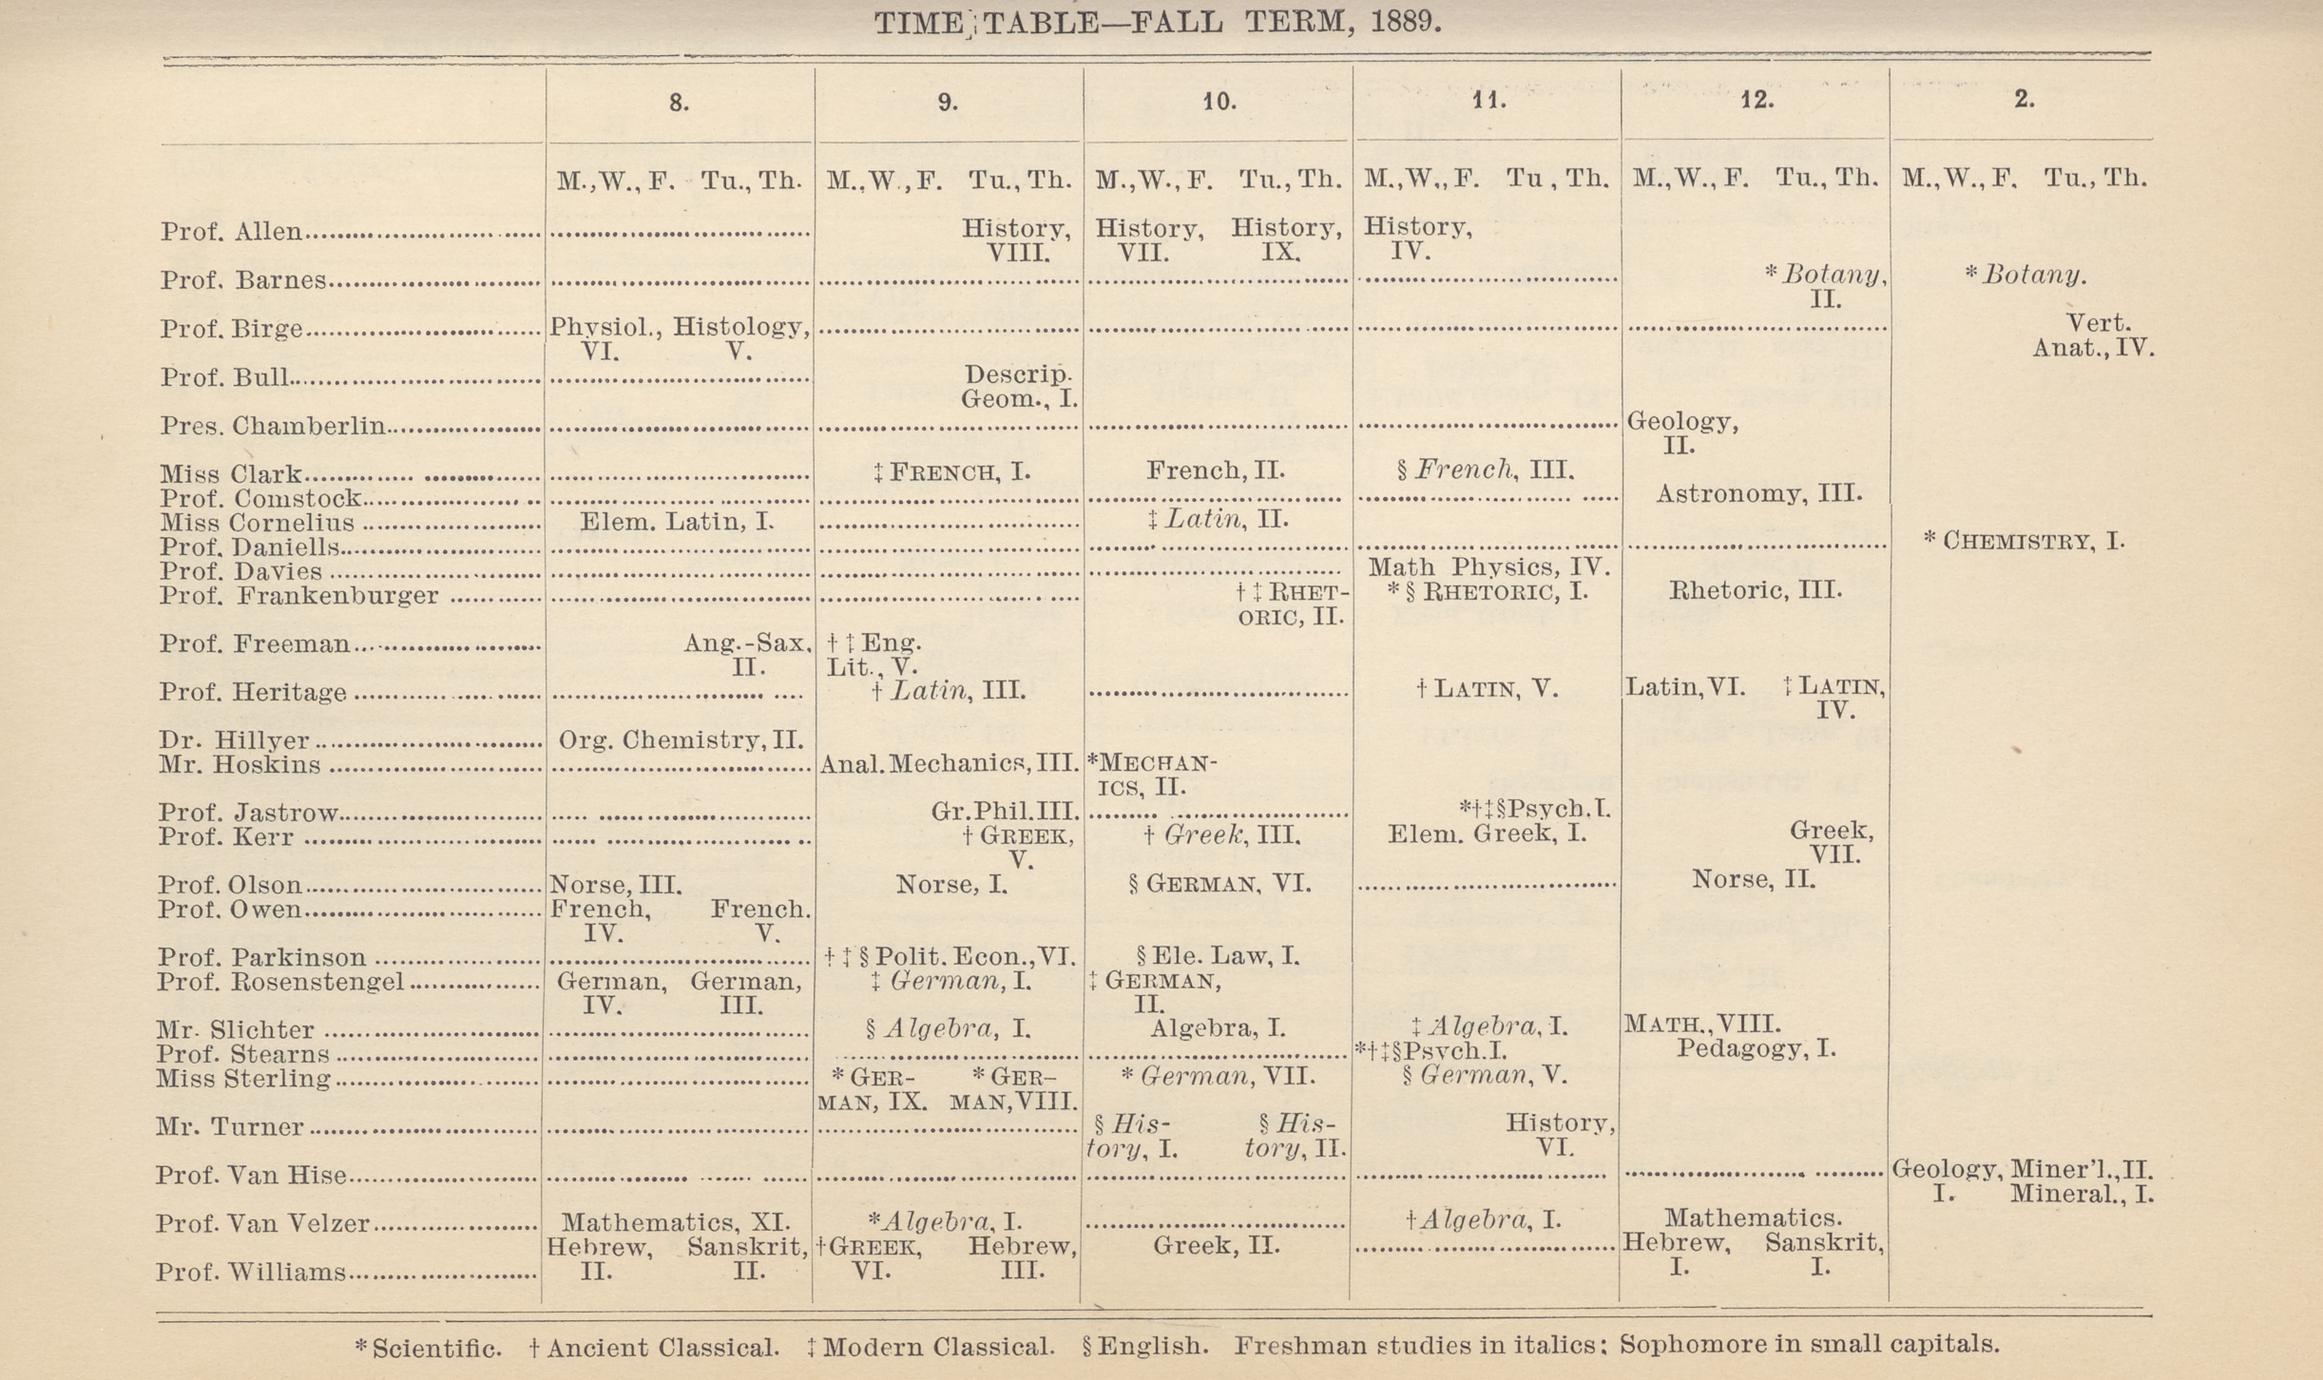 TIME TABLE—FALL TERM, 1889.
8. 9. 10. 11. 12. 2.
M., W., F. Tu., Th. M., W., F. Tu., Th. M., W., F. Tu., Th. M., W., F. Tu , Th. M., W., F. Tu., Th. M., W., F. Tu., Th.
Prof. Allen History, History, History, History,
VIII. VII. IX. IV.
Prof. Barnes * Botany, * Botany.
II.
Prof. Birge Physiol., Histology, Vert.
VI. V. Anat., IV.
Prof. Bull Descrip.
Geom., I.
Pres. Chamberlin Geology,
II.
Miss Clark ‡ FRENCH, I. French, II. § French, III.
Prof. Comstock Astronomy, III.
Miss Cornelius Elem. Latin, I. ‡ Latin, II.
Prof. Daniells * CHEMISTRY, I.
Prof. Davies Math Physics, IV.
Prof. Frankenburger † ‡ RHET- * § RHETORIC, I. Rhetoric, III.
ORIC, II.
Prof. Freeman Ang.-Sax. † ‡ Eng.
II. Lit., V.
Prof. Heritage † Latin, III. † LATIN, V. Latin, VI. ‡ LATIN,
IV.
Dr. Hillyer Org. Chemistry, II.
Mr. Hoskins Anal. Mechanics, III. *MECHAN-
ICS, II.
Prof. Jastrow Gr. Phil. III. *†‡§Psych. I.
Prof. Kerr † GREEK, † Greek, III. Elem. Greek, I. Greek,
V. VII.
Prof. Olson Norse, III. Norse, I. § GERMAN, VI. Norse, II.
Prof. Owen French, French.
IV. V.
Prof. Parkinson † ‡ § Polit. Econ., VI. § Ele. Law, I.
Prof. Rosenstengel German, German, ‡ German, I. ‡ GERMAN,
IV. III. II.
Mr. Slichter § Algebra, I. Algebra, I. ‡ Algebra, I. MATH., VIII.
Prof. Stearns *†‡§Psych. I. Pedagogy, I.
Miss Sterling * GER- * GER- * German, VII. § German, V.
MAN, IX. MAN, VIII.
Mr. Turner § His- § His- History,
tory, I. tory, II. VI.
Prof. Van Hise Geology, Miner'l., II.
I. Mineral., I.
Prof. Van Velzer Mathematics, XI. *Algebra, I. †Algebra, I. Mathematics.
Hebrew, Sanskrit, †GREEK, Hebrew, Greek, II. Hebrew, Sanskrit,
Prof. Williams II. II. VI. III. I. I.
* Scientific. † Ancient Classical. ‡ Modern Classical. § English. Freshman studies in italics; Sophomore in small capitals.